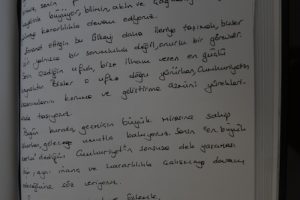 büyüyor, bilimin, aklın ve çağdaş
kararlılıkla devam ediyoruz.
emanet ettiğin bu ülkeyi daha ileriye taşımak, bizler
yalnızca bir sorumluluk değil, onurlu bir görevdir.
Sen çizdiğin ufuk, bize ilham veren en güçlü
Bizler o ufka doğru yürürken, Cumhuriyetin
koruma ve geliştirme azmini yürekleri
taşıyoruz.
Bugün burada, geçmişin büyük mirasına sahip
geleceğe umutla bakıyoruz. Senin "en büyük
dediğin Cumhuriyet'in sonsuza dek yaşaması
için, aynı inanç ve kararlılıkla çalışmaya devam
edeceğimize söz veriyoruz.